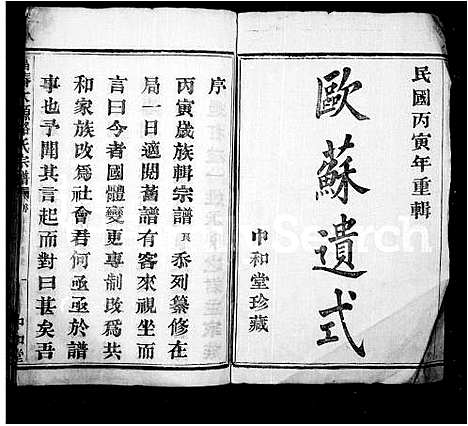 民國丙寅年重輯
歐蘇遺式
中和堂珍藏
序
丙寅歲族輯宗譜 忝列纂修在
局一日適閱舊譜有客來視坐而
言曰今者國體變更專制改為共
和家族改為社會君何亟亟於譜
事也予聞其言起而對曰甚矣吾
氏宗譜
中和堂
Search